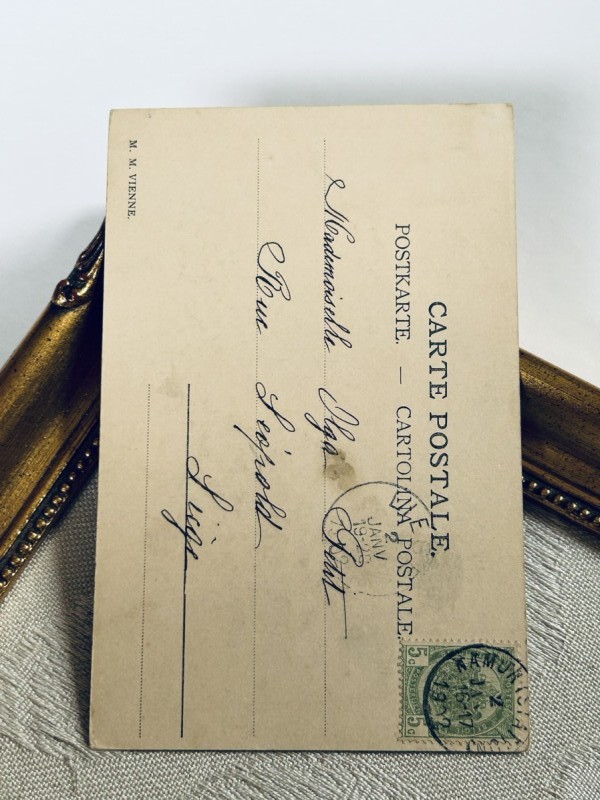 CARTE POSTALE.
POSTKARTE. — CARTOLINA POSTALE.
Mademoiselle Olga Petit
Rue Léopold
Liége
M. M. VIENNE.
5c 5c
NAMUR
2
16-17
JANV
2